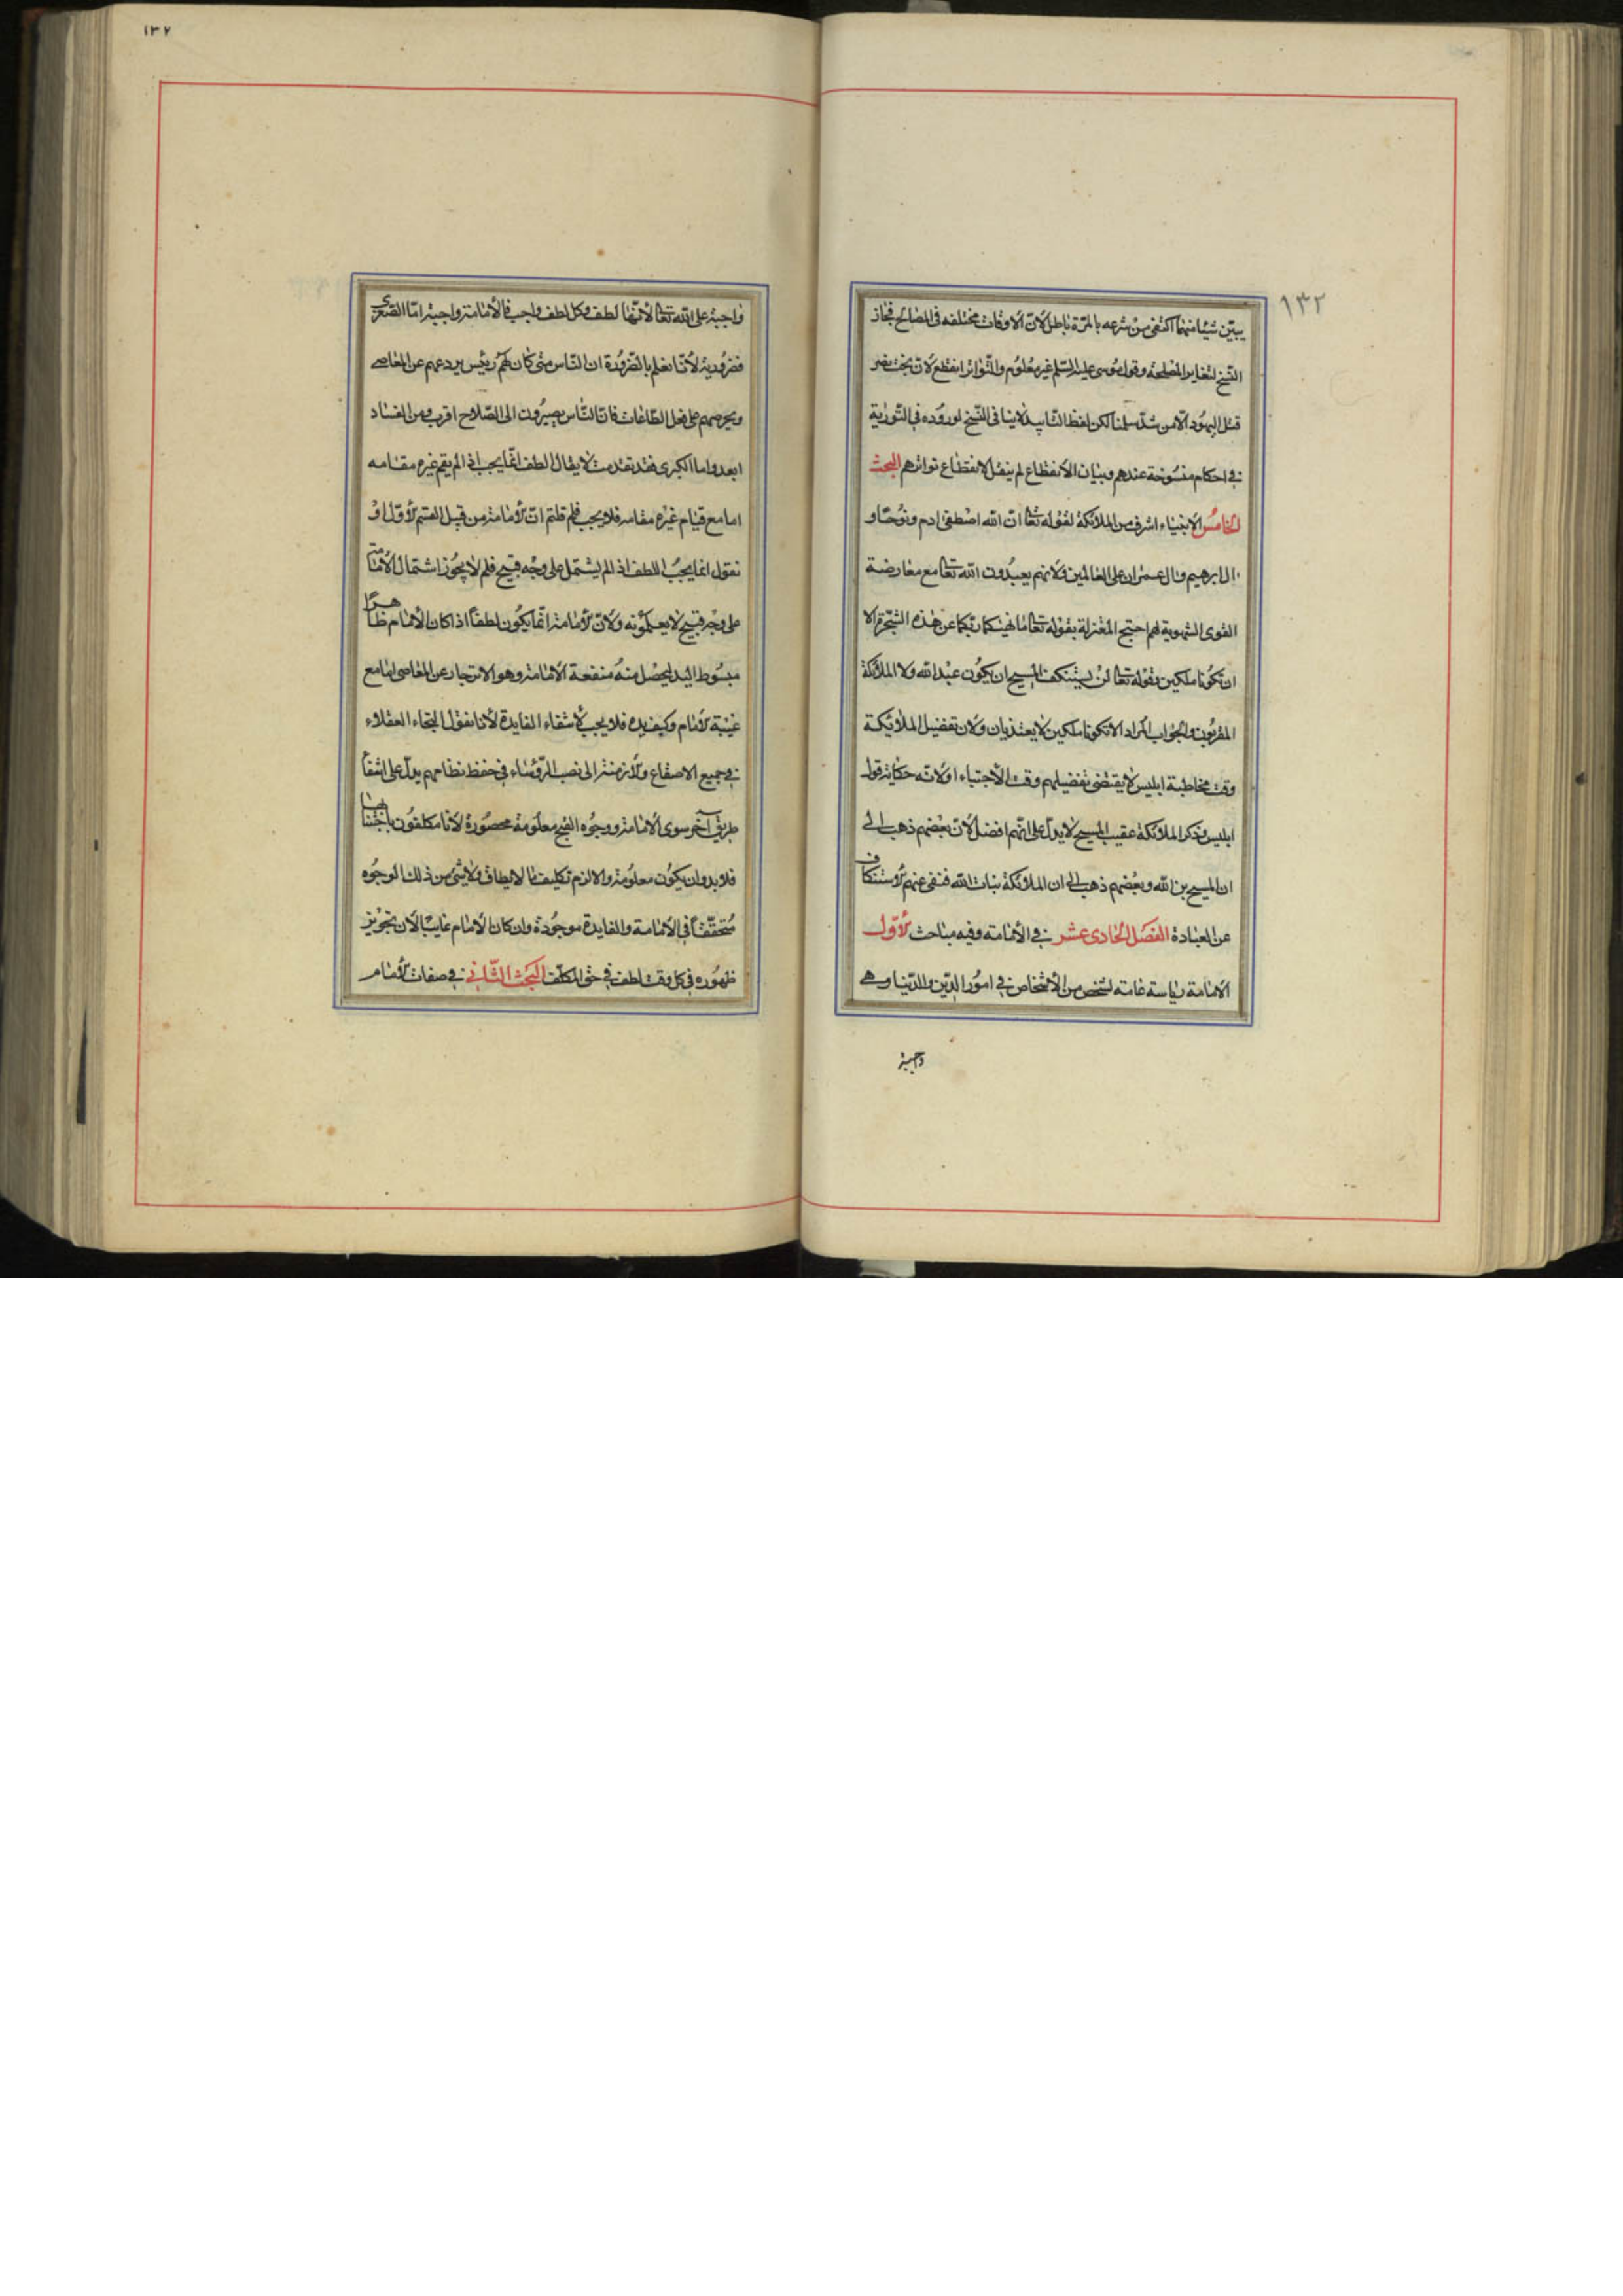 ١٣٢
يبيّن شيئا منهما اكتفى من شرعه بالمرّة باطل لانّ الاوقات مختلفه فى المصالح فجاز
النّسخ لتغاير المصلحة وقول موسى عليه السّلم غير معلوم والتّواتر انقطع لانّ بخت نصر
قتل اليهود الّا من شذّ سلمنا لكن لفظ التّاييد لاينافى النّسخ لوروده فى التّورية
فى احكام منسوخة عندهم وبيان الانقطاع لم ينقل لانقطاع تواترهم البحث
الخامس الانبياء اشرف من الملائكة لقوله تعا انّ الله اصطفى ادم ونوحا و
ال ابرهيم وال عمران على العالمين ولانهم يعبدون الله تعا مع معارضة
القوى الشهوية لهم احتج المعتزلة بقوله تعا ما نهيكما ربّكما عن هذه الشّجرة الا
ان تكونا ملكين بقوله تعا لن يستنكف المسيح ان يكون عبد الله ولا الملائكة
المقربون والجواب المراد الا تكونا ملكين لا يغتذيان ولان تفضيل الملائيكة
وقت مخاطبة ابليس لا يقتضى تفضيلهم وقت الاجتباء او لانّه حكاية قول
ابليس وذكر الملائكة عقيب المسيح لا يدلّ على انّهم افضل لانّ بعضهم ذهب الى
ان المسيح بن الله وبعضهم ذهب الى ان الملائكة بنات الله فنفى عنهم الاستنكاف
عن العبادة الفصل الحادى عشر فى الامامة وفيه مباحث الاوّل
الامامة رياسة عامة لشخص من الاشخاص فى امور الدّين والدّنيا وهى
واجبة
١٣٢
واجبة على الله تعا لانّها لطف وكل لطف واجب فالامامة واجبة امّا الصّغرى
فضرورية لانّا نعلم بالضّرورة ان النّاس متى كان لهم رئيس يردعهم عن المعاصى
ويحرصهم على فعل الطّاعات فانّ النّاس يصيرون الى الصّلاح اقرب ومن الفساد
ابعد واما الكبرى فقد تقدمت لا يقال اللطف انّما يجب اذا لم يقم غيره مقامه
اما مع قيام غيره مقامه فلا يجب فلم قلتم انّ الامامة من قبيل القسم الاوّل او
نقول انما يجب اللطف اذا لم يشتمل على وجه قبيح فلم لا يجوز اشتمال الامامة
على وجه قبيح لا يعلمونه ولانّ الامامة انّما يكون لطفاً اذا كان الامام ظاهراً
مبسوط اليد ليحصل منه منفعة الامامة وهو الانزجار عن المعاصى امّا مع
غيبة الامام وكف يده فلا يجب لانتفاء الفايدة لانا نقول التجاء العقلاء
فى جميع الاصقاع والازمنة الى نصب الرّؤساء فى حفظ نظامهم يدلّ على انتفاء
طريق آخر سوى الامامة ووجوه القبح معلومة محصورة لانا مكلفون باجتنابها
فلا بد وان يكون معلومة والا لزم تكليف ما لايطاق ولا شئ من ذلك الوجوه
متحققاً فى الامامة والفايدة موجودة وان كان الامام غايبا لان تجويز
ظهوره فى كل وقت لطف فى حق المكلّف البحث الثّانى فى صفات الامام